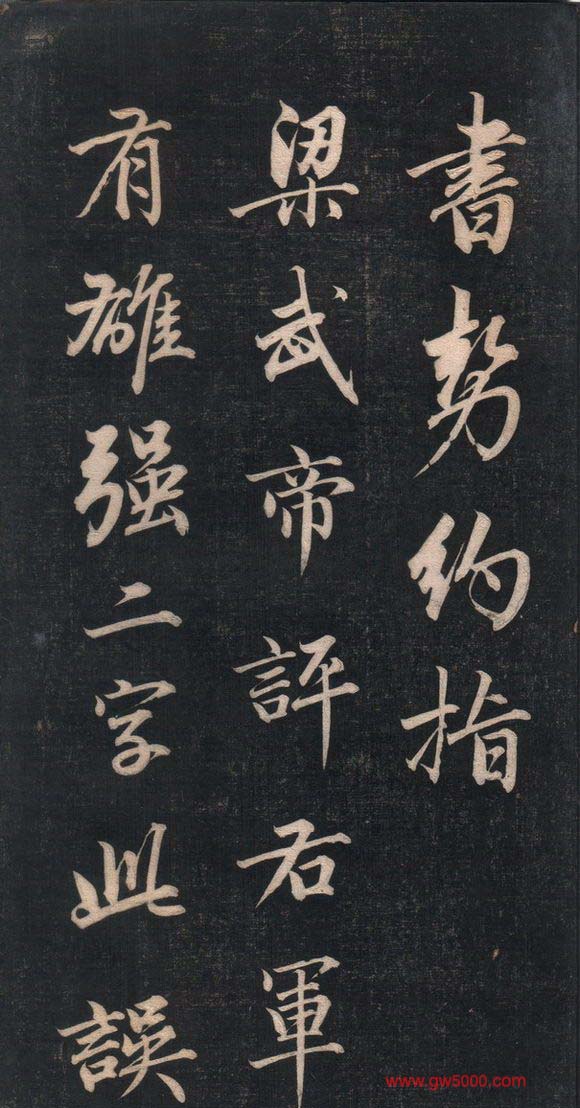 書勢約指
梁武帝評右軍
有雄强二字此誤
www.gw5000.com